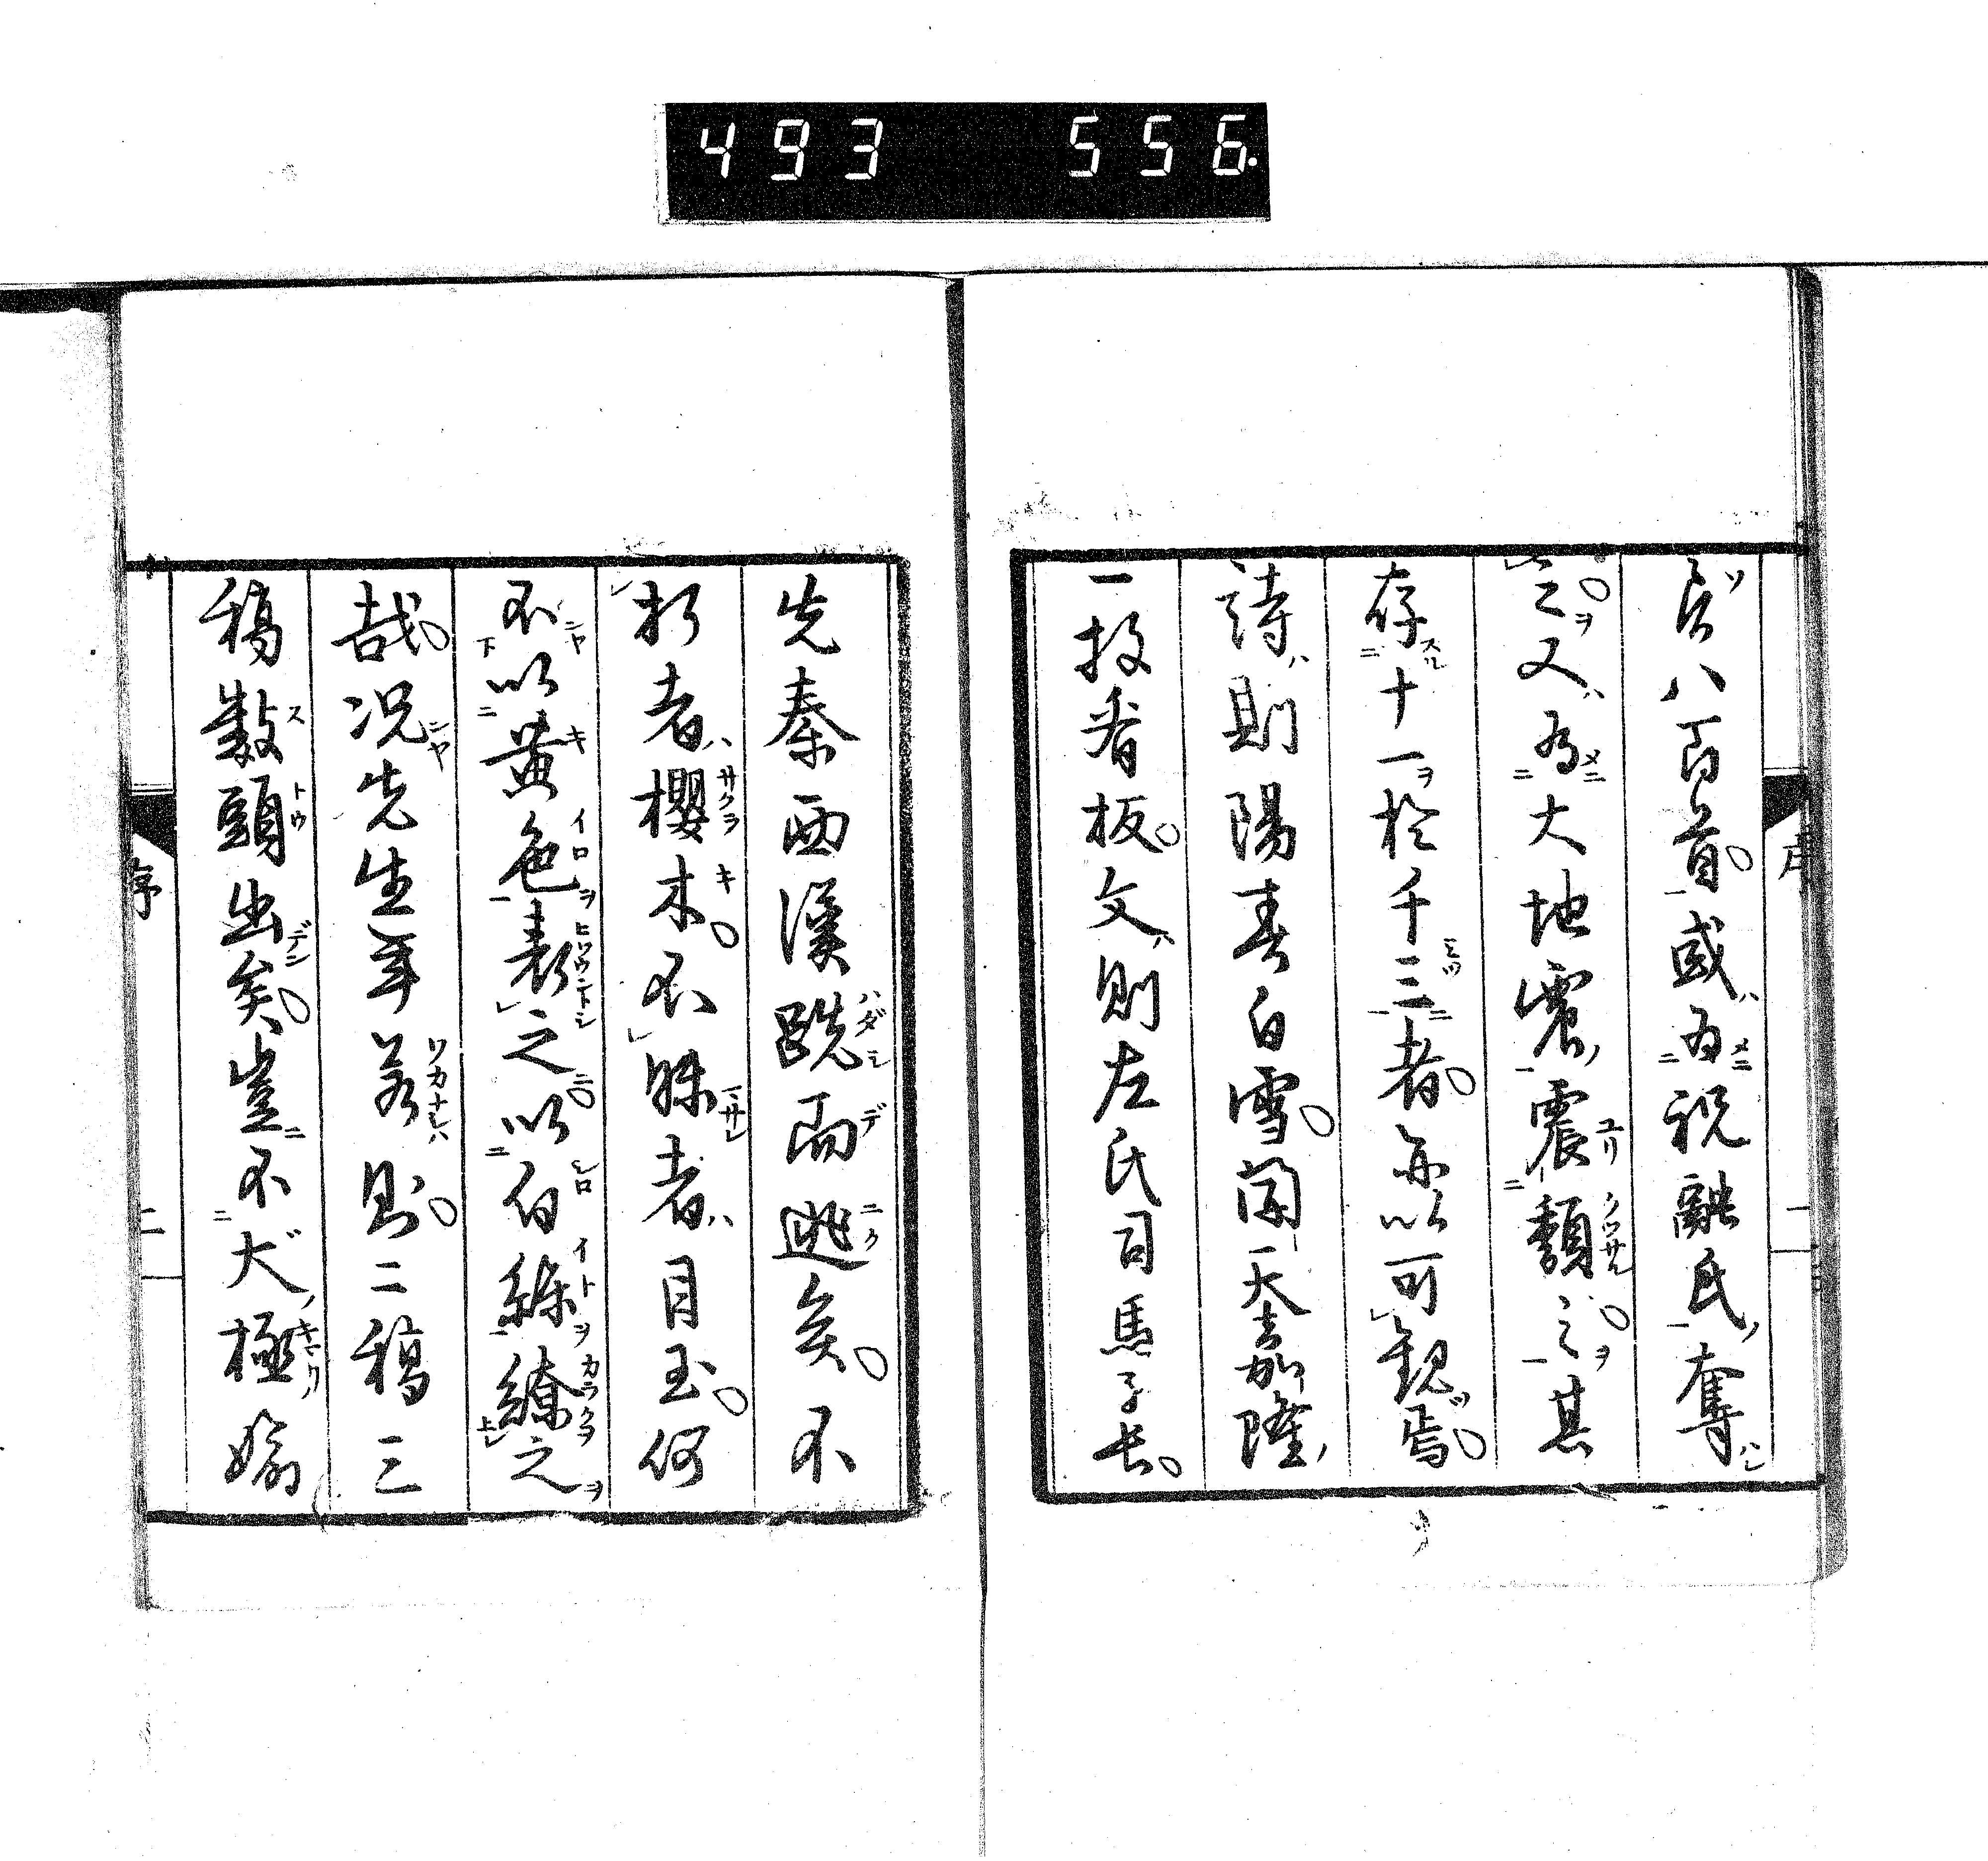 493 556.
八百首或為祝融氏奪
之又為大地震震頽之其
存十一於千三者亦以可観焉
詩則陽春白雪開天嘉隆
一投看板文則左氏司馬子長
序
一
先秦西漢跣而逃矣不
折者櫻木不眯者目玉何
不以黄色表之以白絲繚之
哉況先生年若則二稿三
稿数頭出矣豈不大極
序
二